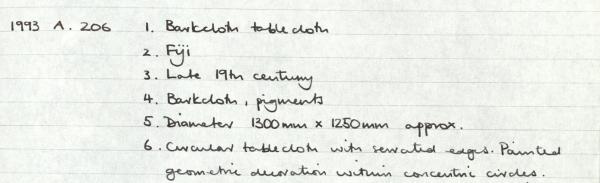 1993 A. 206 1. Barkcloth tablecloth
2. Fiji
3. Late 19th century
4. Barkcloth, pigments
5. Diameter 1300mm x 1250mm approx.
6. Circular tablecloth with serrated edges. Painted
geometric decoration within concentric circles.